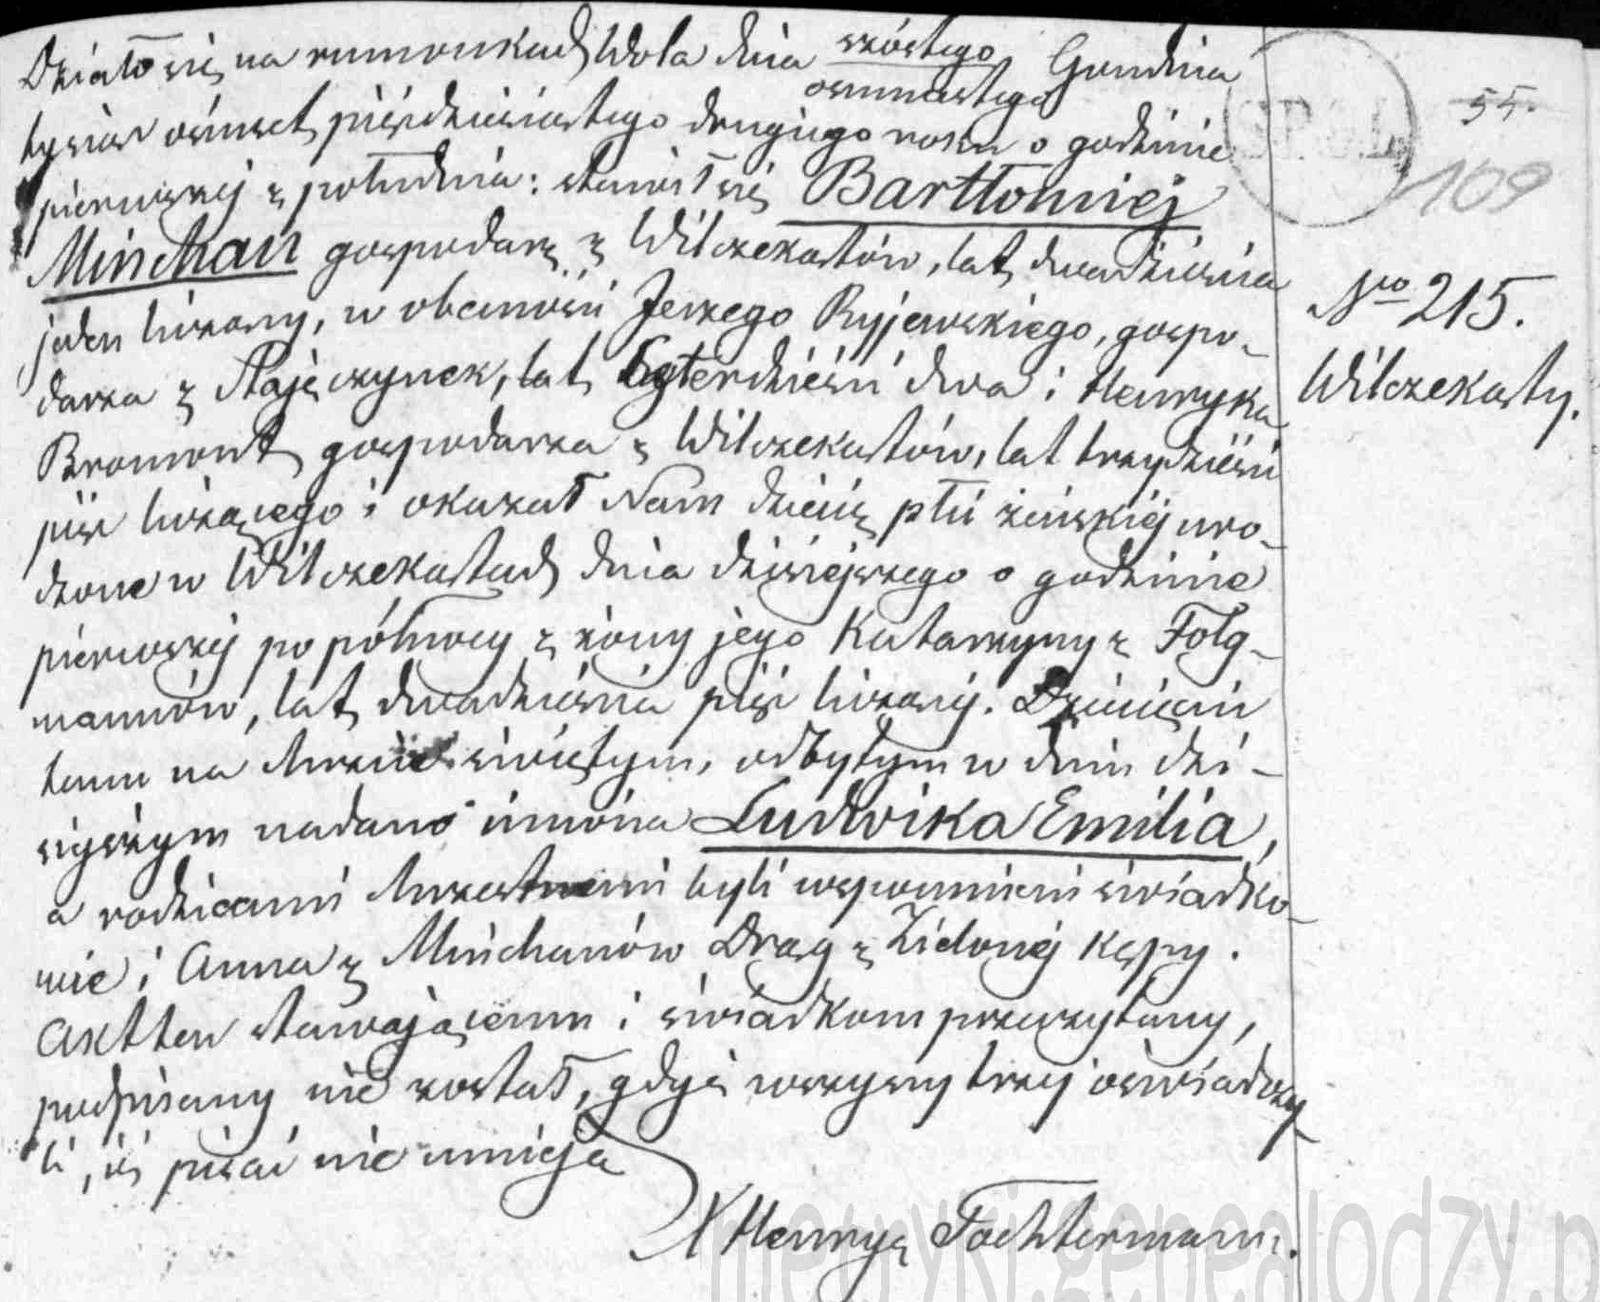 Działo się na rumunkach Wola dnia szóstego Grudnia
osumnastego
tysiąc ośmset pięćdziesiątego drugiego roku o godzinie
pierwszej z południa: stawił się Barttłomiej
Minchau gospodarz z Wilczekąstów, lat dwadzieścia
jeden liczący, w obecności Jerzego Ryjewskiego, gospo-
darza z Stajęczynek, lat czterdzieści dwa i Henryka
Bromont gospodarza z Wilczekąstów, lat trzydzieści
pięć liczącego i okazał Nam dziecię płci żeńskiéj uro-
dzone w Wilczekąstach dnia dzisiejszego o godzinie
pierwszej po północy z żony jego Katarzyny z Folg-
mannów, lat dwadzieścia pięć liczącej. Dziecięciu
temu na Chrzcie świętym, odbytym w dniu dzi-
siejszym nadano imiona Ludwika Emilia,
a rodzicami Chrzestnemi byli wspomnieni świadko-
wie i Anna z Minchauów Drag z Zielonéj Kępy.
Akt ten stawającemu i świadkom przeczytany,
podpisany nie został, gdyż wszyscy trzej oświadczy-
li, iż pisać nie umieją
X Henryg Tochtermann.
55.
109
Nro 215.
Wilczekąsty.
metryki.genealodzy.p